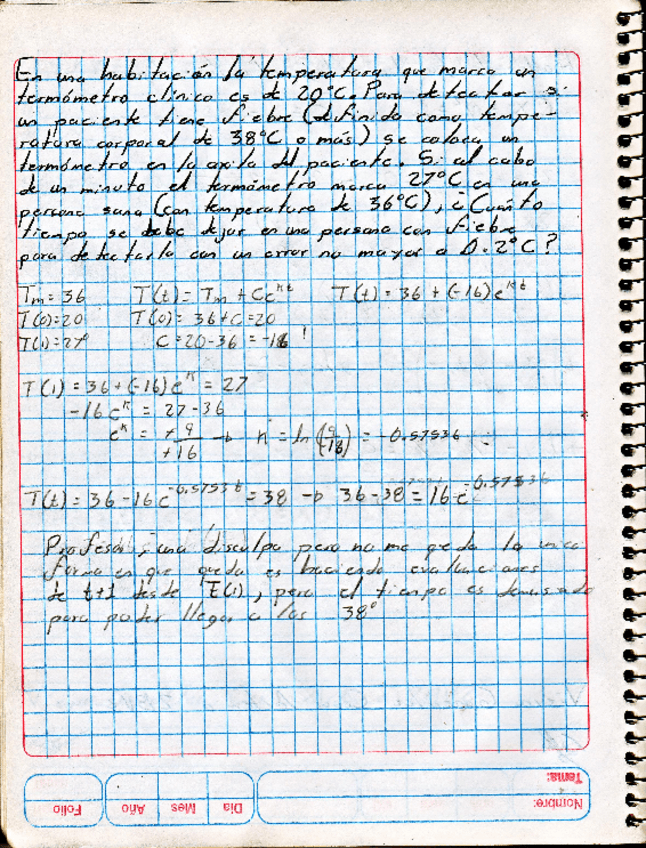 En una habitación la temperatura que marca un
termómetro clínico es de 20°C. Para detectar si
un paciente tiene fiebre (definida como tempe-
ratura corporal de 38°C o más) se coloca un
termómetro en la axila del paciente. Si al cabo
de un minuto el termómetro marca 27°C en una
persona sana (con temperatura de 36°C), ¿Cuánto
tiempo se debe dejar en una persona con fiebre
para detectarla con un error no mayor a 0.2°C?
Tm = 36 T(t) = Tm + Ce^kt T(t) = 36 + (-16)e^kt
T(0)=20 T(0) = 36 + C = 20
T(1)=27° C = 20-36 = -16
T(1) = 36 + (-16)e^k = 27
-16e^k = 27-36
e^k = +9/+16 → k = ln(-9/-16) = -0.57536
T(t) = 36-16e^-0.5753t = 38 → 36-38 = 16e^-0.57536
Profesor, una disculpa pero no me queda la unica
forma en que queda es haciendo evaluaciones
de t+1 desde T(1), pero el tiempo es demasiado
para poder llegar a los 38°
Tema:
Nombre:
Día Mes Año Folio